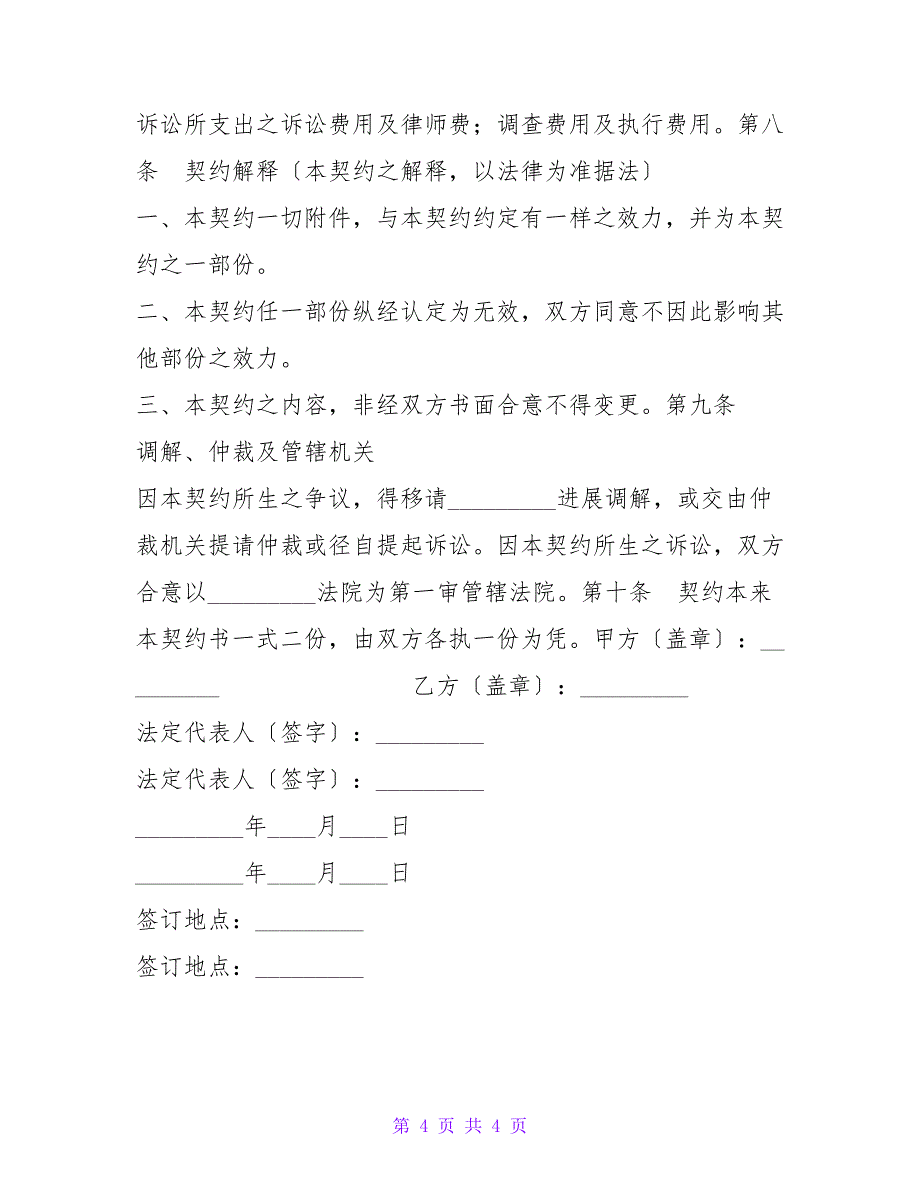 诉讼所支出之诉讼费用及律师费；调查费用及执行费用。第八
条　契约解释〔本契约之解释，以法律为准据法〕
一、本契约一切附件，与本契约约定有一样之效力，并为本契
约之一部份。
二、本契约任一部份纵经认定为无效，双方同意不因此影响其
他部份之效力。
三、本契约之内容，非经双方书面合意不得变更。第九条
调解、仲裁及管辖机关
因本契约所生之争议，得移请_________进展调解，或交由仲
裁机关提请仲裁或径自提起诉讼。因本契约所生之诉讼，双方
合意以_________法院为第一审管辖法院。第十条　契约本来
本契约书一式二份，由双方各执一份为凭。甲方〔盖章〕：__
_______　　　　　　　　乙方〔盖章〕：_________
法定代表人〔签字〕：_________
法定代表人〔签字〕：_________
_________年____月____日
_________年____月____日
签订地点：_________
签订地点：_________
第 4 页 共 4 页